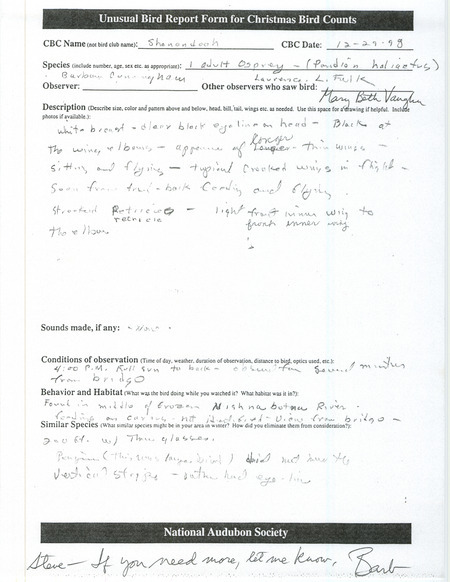 Unusual Bird Report Form for Christmas Bird Counts
CBC Name (not bird club name): Shenandoah CBC Date: 12-27-98
Species (include number, age, sex etc. as appropriate): 1 adult Osprey - (Pandion haliaetus)
Observer: Barbara Cunningham Other observers who saw bird: Laurence L. Falk
Mary Beth Vaughn
Description (Describe size, color and pattern above and below, head, bill, tail, wings etc. as needed. Use this space for a drawing if helpful. Include
photos if available.):
white breast - clear black eye line on head - Black at
The wing elbows - appearance of longer thin wings -
sitting and flying - typical crooked wings in flight -
Seen from front - back feeding and flying.
light front inner wing to
the elbow front inner wing
Sounds made, if any: - None -
Conditions of observation (Time of day, weather, duration of observation, distance to bird, optics used, etc.):
4:00 P.M. Full sun to back - observation several minutes
from bridge
Behavior and Habitat (What was the bird doing while you watched it? What habitat was it in?):
Found in middle of frozen Nishnabotna River
feeding on carrion - not identified - view from bridge -
Similar Species (What similar species might be in your area in winter? How did you eliminate them from consideration?):
200 ft. w/ glasses.
did not have the
vertical stripe - rather had eye-line
National Audubon Society
Steve - If you need more, let me know, Barb